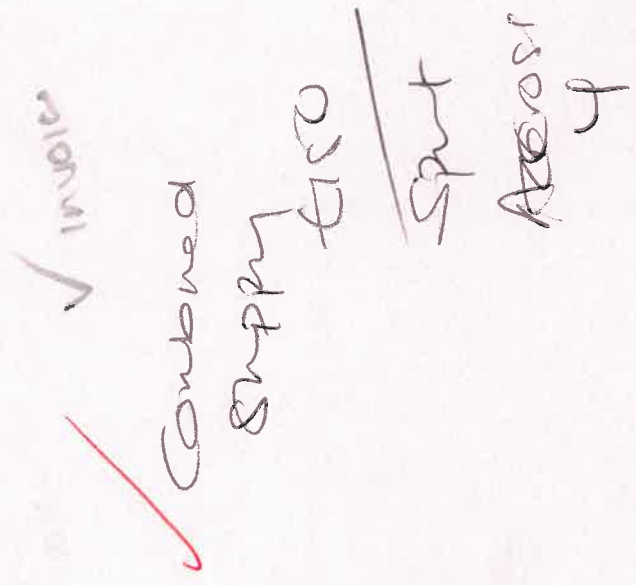 ✓ Invoice
Combined
Shipping
£150
Split
Across
4